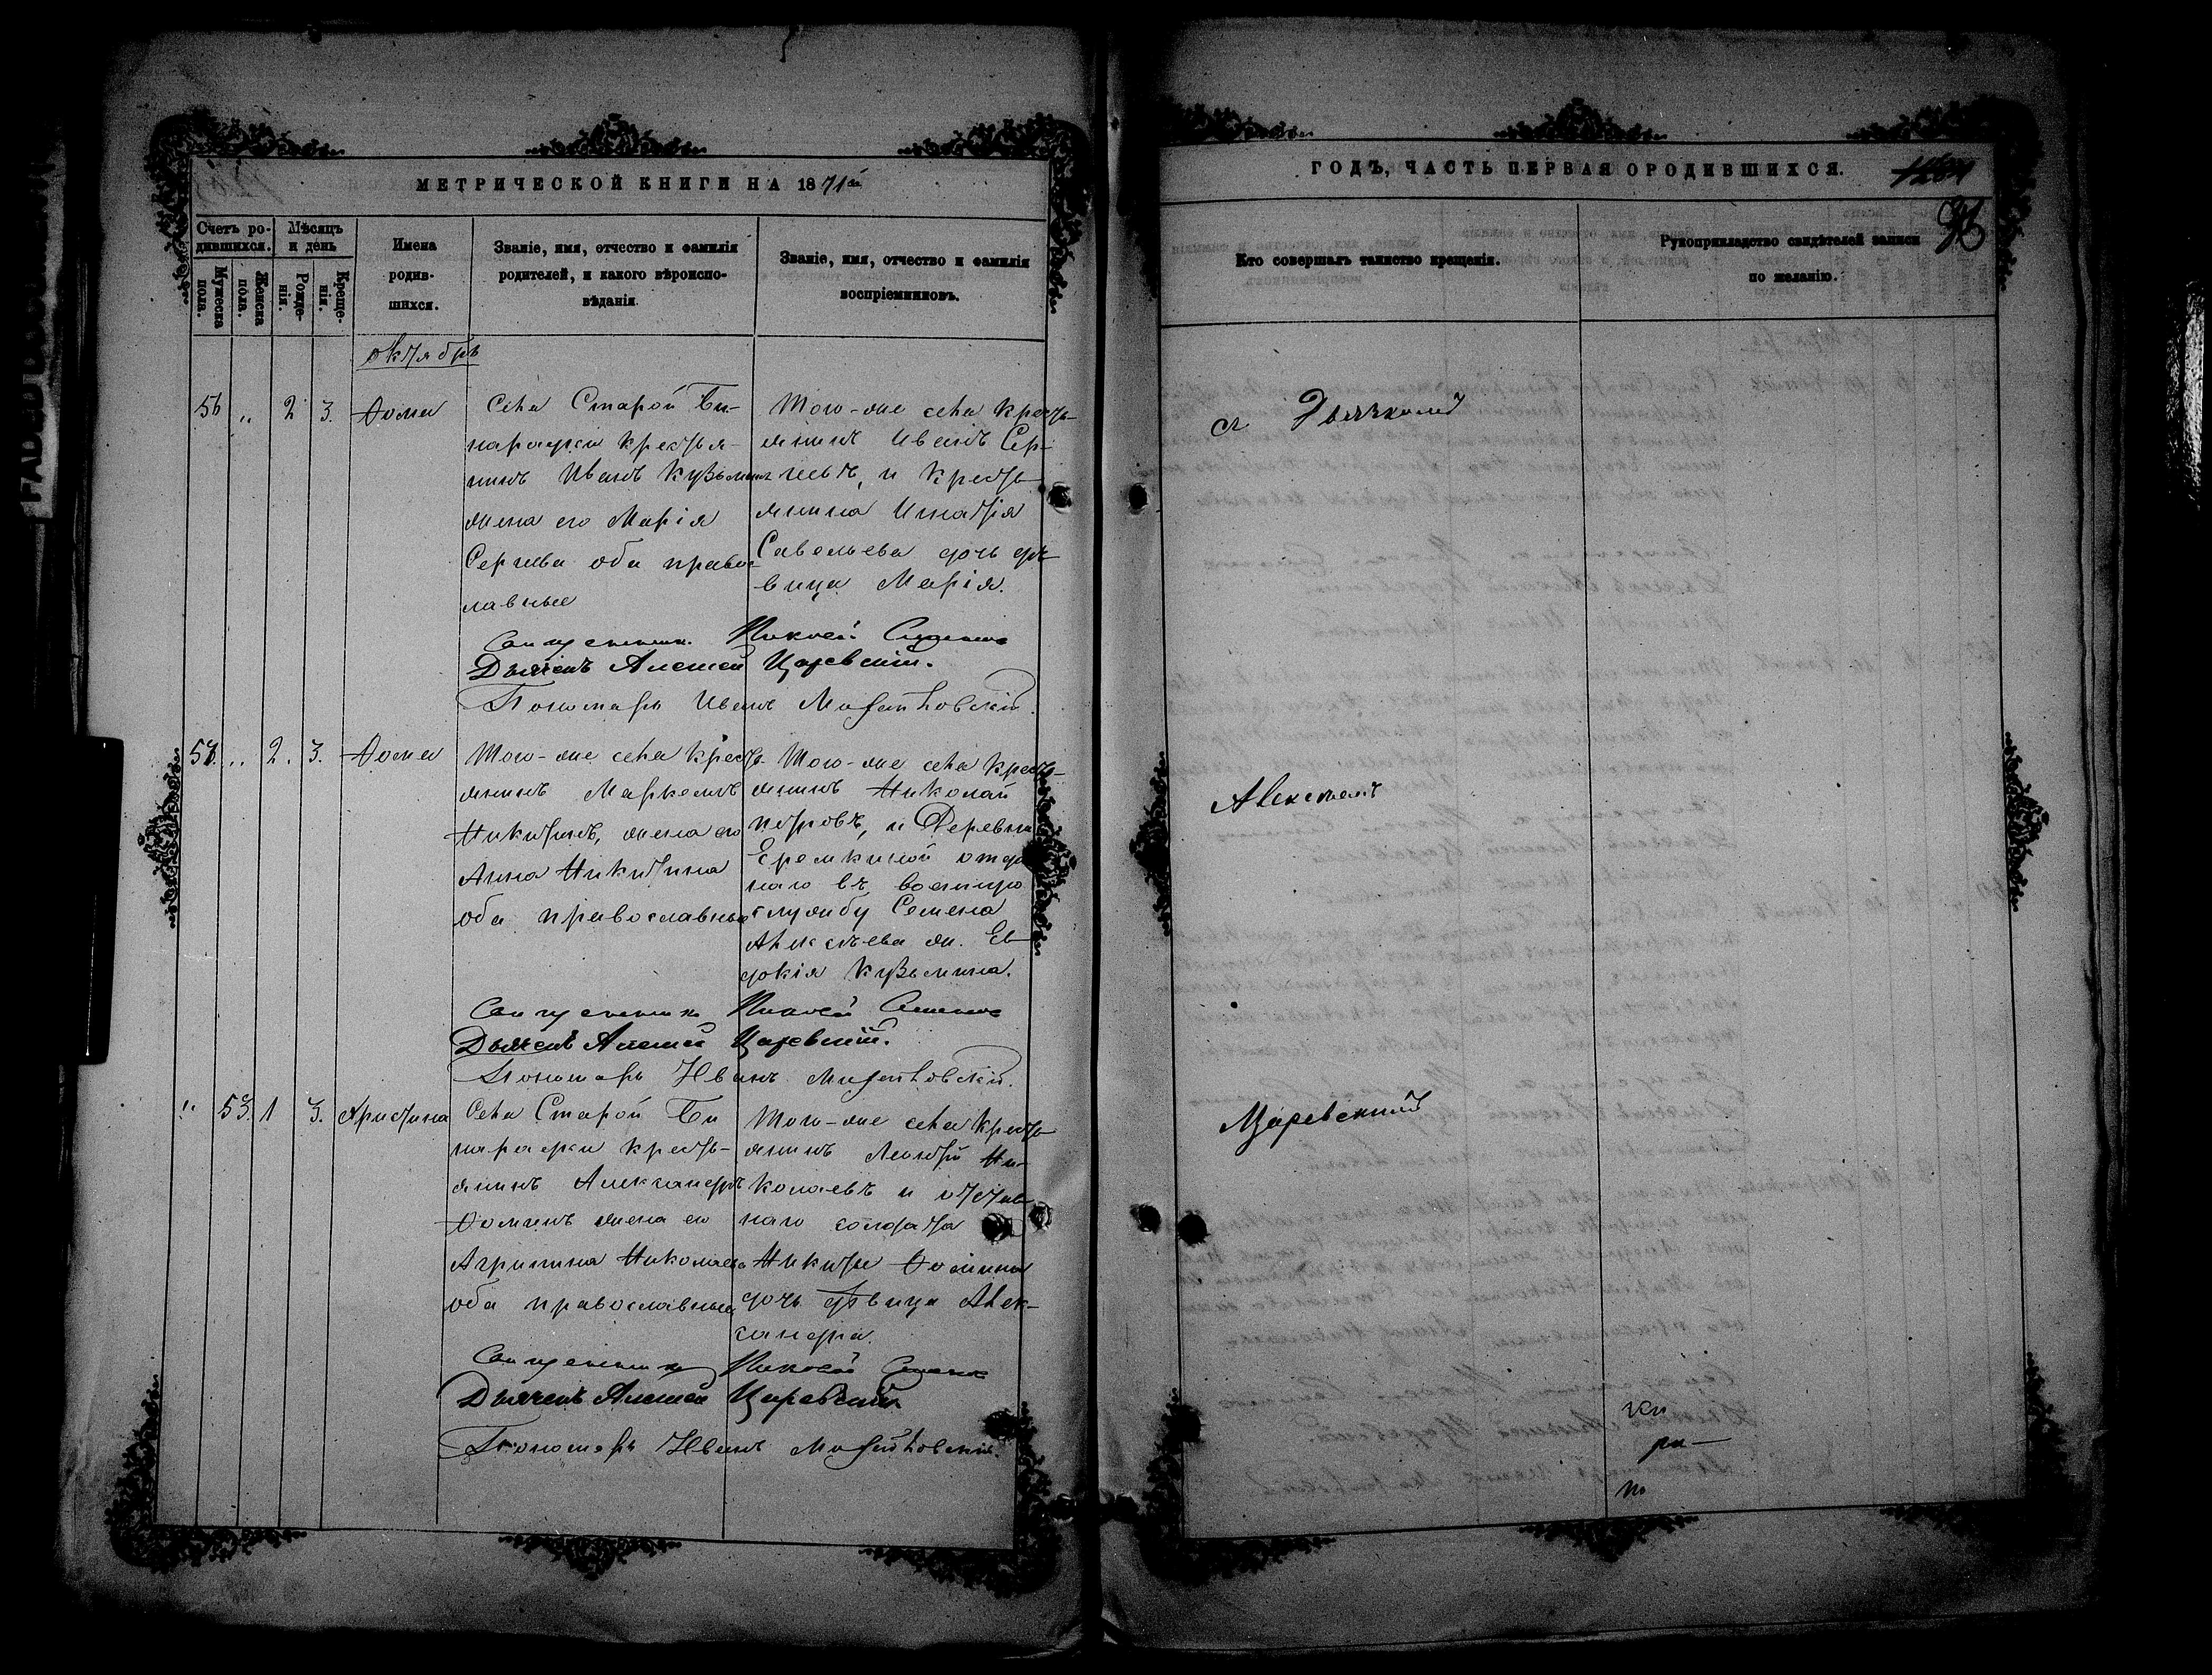 МЕТРИЧЕСКОЙ КНИГИ НА 1871й
Счетъ ро-
дившихся.
Мѣсяцъ
и день
Мужеска
пола.
Женска
пола.
Рожде-
нія.
Креще-
нія.
Имена
родив-
шихся.
Званіе, имя, отчество и фамилія
родителей, и какого вѣроиспо-
вѣданія.
Званіе, имя, отчество и фамилія
воспріемниковъ.
октябрь
56 „ 2 3. Ѳома
Села Старой Би-
нарадки крестья-
нинъ Иванъ Кузьминъ
жена его Марія
Сергѣева оба правос-
лавные
Того-же села кресть-
янинъ Иванъ Сер-
гѣевъ, и кресть-
янина Игнатія
Савельева дочь дѣ-
вица Марія.
Священникъ
Дьяконъ Алексей Царевскій.
Пономарь Иванъ
57. „ 2. 3. Ѳома
Того-же села кресть-
янинъ Маркелъ
Никитинъ, жена его
Анна Никитина
оба православные
Того-же села кресть-
янинъ Николай
Петровъ, и Деревни
Еремкиной отдан
наго въ военную
службу Семена
Алексѣева ж. Ев-
докія Кузьмина.
Священникъ
Дьяконъ Алексей Царевскій.
Пономарь Иванъ
„ 53. 1 3. Христина
Села Старой Би
нарадки кресть-
янинъ Александръ
Ѳоминъ жена его
Агрипина Николаева
оба православные
Того-же села кресть-
янинъ Леонтій Ни-
колаевъ и отстав
наго солдата
Никиты Ѳомина
дочь дѣвица Алек-
сандра.
Священникъ
Дьяконъ Алексей Царевскій
Пономарь Иванъ
ГОДЪ, ЧАСТЬ ПЕРВАЯ О РОДИВШИХСЯ.
Кто совершалъ таинство крещенія.
Рукоприкладство свидѣтелей записи
по желанію.
съ Дьякономъ
Алексеемъ
Царевскимъ